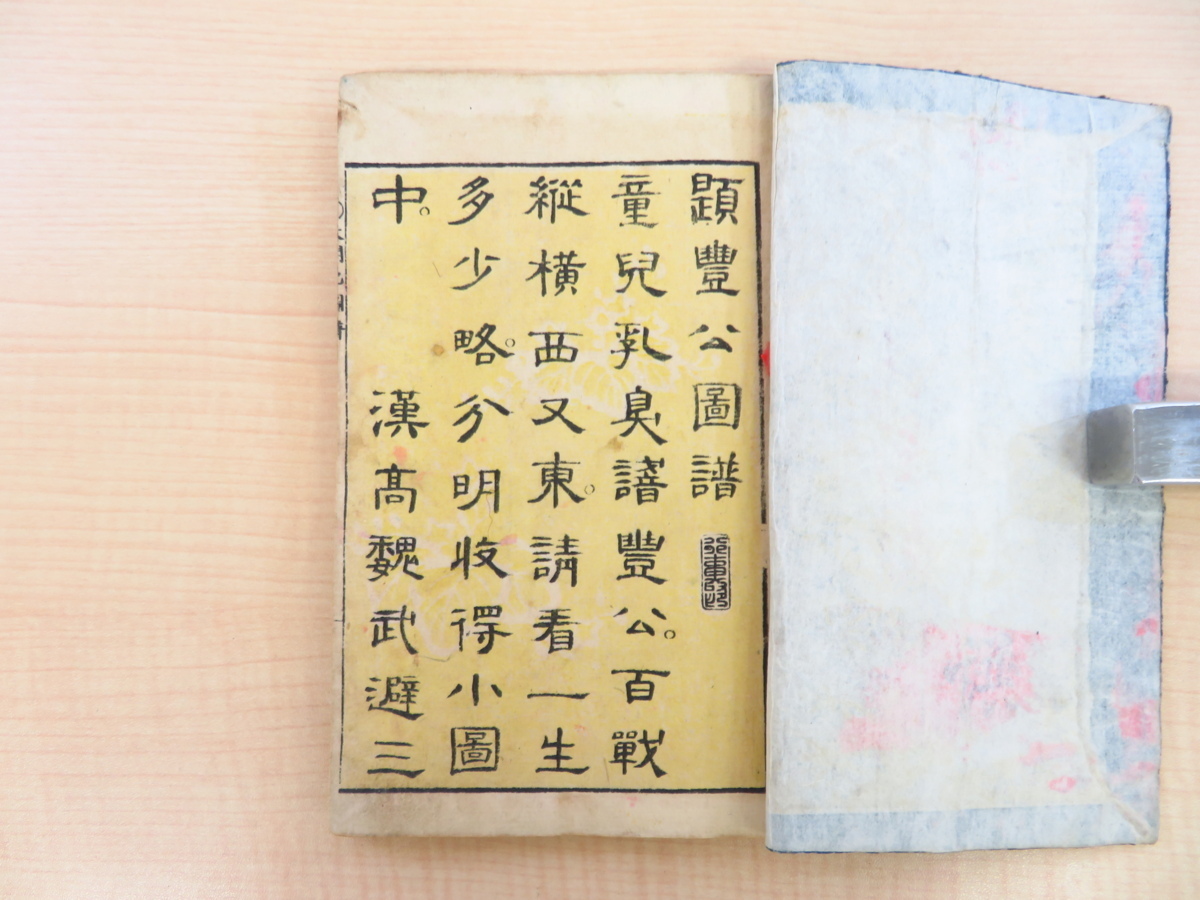 題豐公圖譜
童兒乳臭譆豐公。百戰
縱橫西又東。請看一生
多少略。分明收得小圖
中。 漢高魏武避三